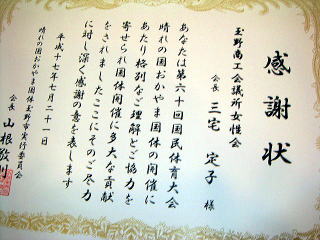 感謝状
玉野商工会議所女性会
会長 三宅 定子 様
あなたは第六十回国民体育大会
晴れの国おかやま国体の開催に
あたり格別なご理解とご協力を
寄せられ国体開催に多大な貢献
をされましたここにそのご尽力
に対し深く感謝の意を表します
平成十七年七月二十一日
晴れの国おかやま国体玉野市実行委員会
会長 山根敬則